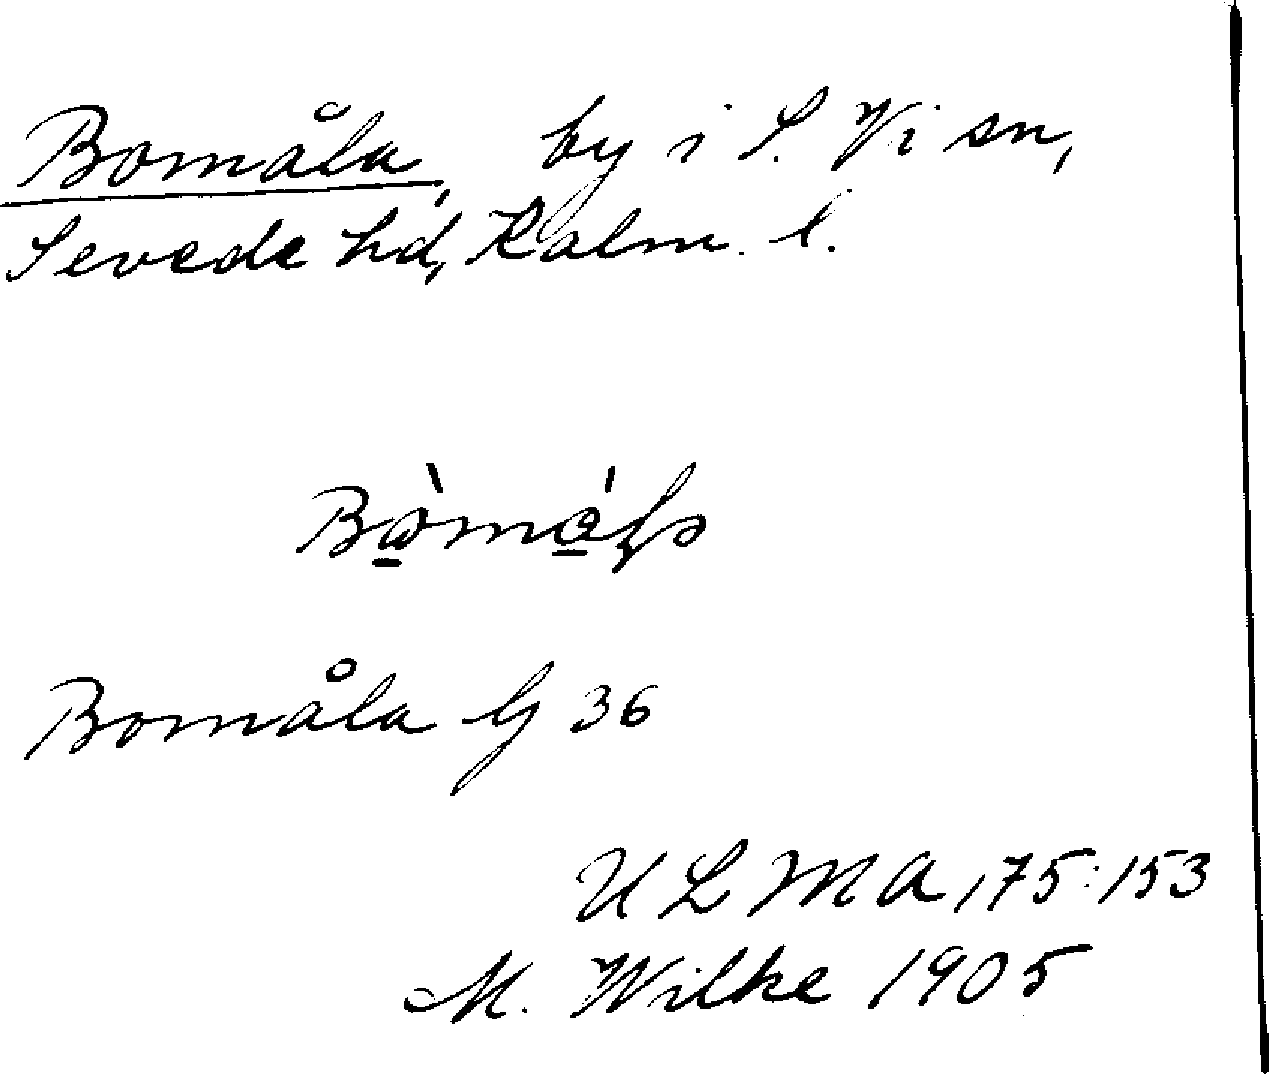 Bomåla, by i S. Vi sn,
Sevede hd, Kalm. l.
Bomåla G 36
ULMA 175:153
M. Wilke 1905